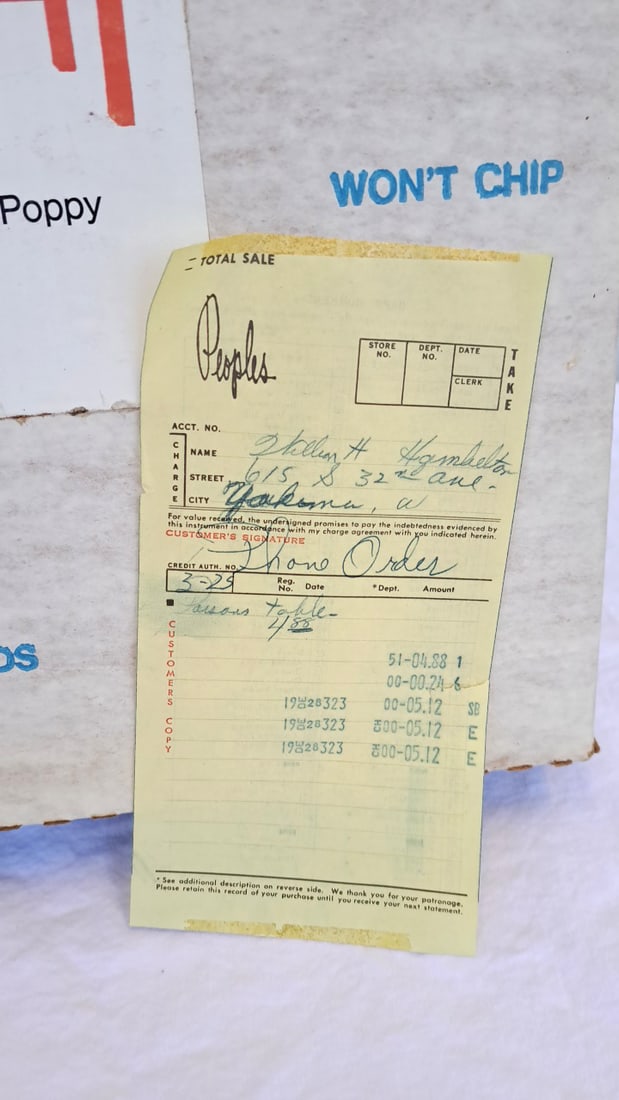 Poppy
WON'T CHIP
DS
TOTAL SALE
Peoples
STORE NO.
DEPT. NO.
DATE
CLERK
TAKE
ACCT. NO.
CHARGE
NAME H Hambelton
STREET 615 S 32nd ave.
CITY Yakima, W
For value received, the undersigned promises to pay the indebtedness evidenced by
this instrument in accordance with my charge agreement with you indicated herein.
CUSTOMER'S SIGNATURE
Phone Order
CREDIT AUTH. NO.
3-25 Reg. No. Date *Dept. Amount
Parsons table
4 88
CUSTOMERS COPY
51-04.88 1
00-00.24 6
28323 00-05.12 SB
28323 00-05.12 E
28323 00-05.12 E
* See additional description on reverse side. We thank you for your patronage.
Please retain this record of your purchase until you receive your next statement.